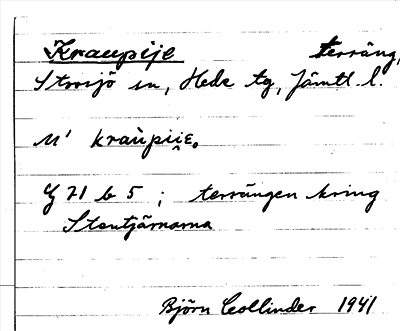 Kraupije terräng,
Storsjö sn, Hede tg, Jämtl. l.
M' kraùpii̯e.
G 71 b 5 ; terrängen kring
Stentjärnarna
Björn Collinder 1941